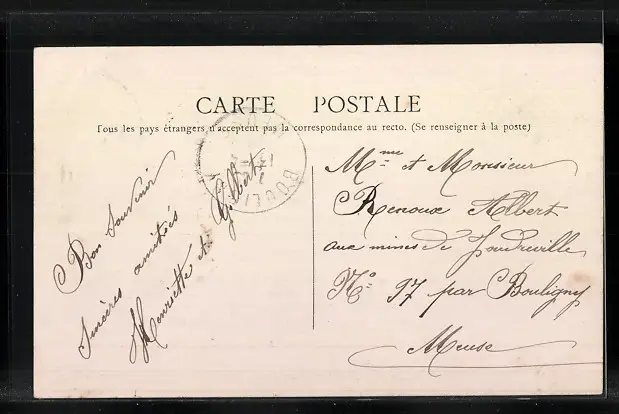 CARTE POSTALE
Tous les pays étrangers n'acceptent pas la correspondance au recto. (Se renseigner à la poste)
Bon Souvenir
Sincères amitiés
Henriette et Gilbert
BOULI
Mme et Monsieur
Renoux Albert
aux mines de Joudreville
No 97 par Bouligny
Meuse